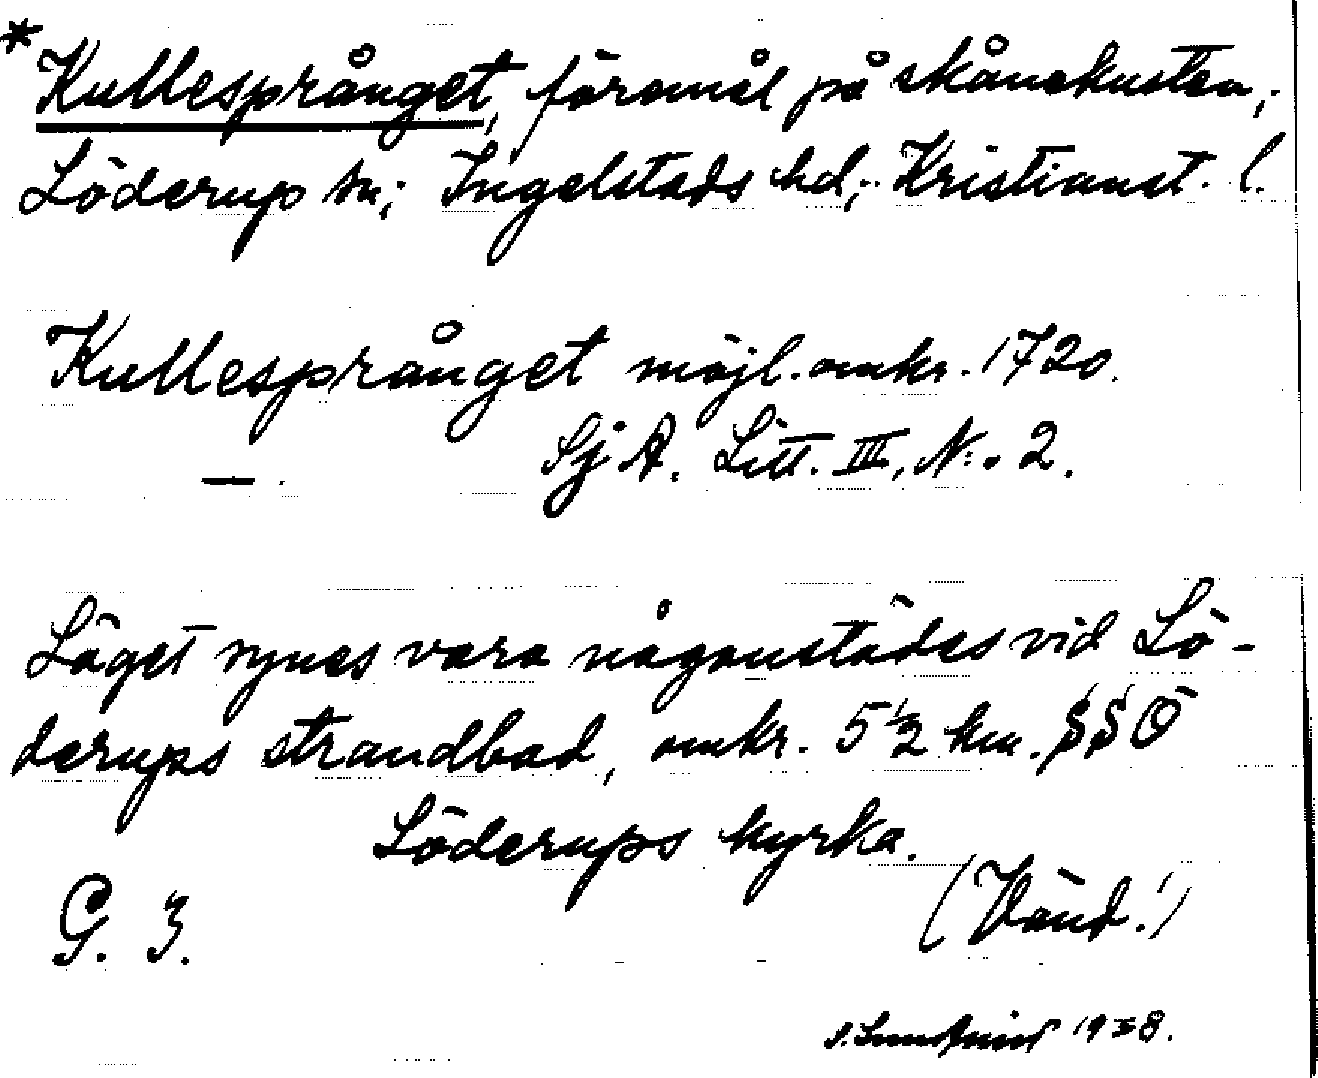 * Kullesprånget, föremål på skånekusten,;
Löderup sn; Ingelstads hd;. Kristianst. l.
Kullesprånget möjl. omkr. 1720.
— . SjA. Litt. III, N:. 2.
Läget synes vara någonstädes vid Lö-
derups strandbad, omkr. 5 1/2 km. SSÖ
Löderups kyrka.
(Vänd!)
G. 3.
1938.